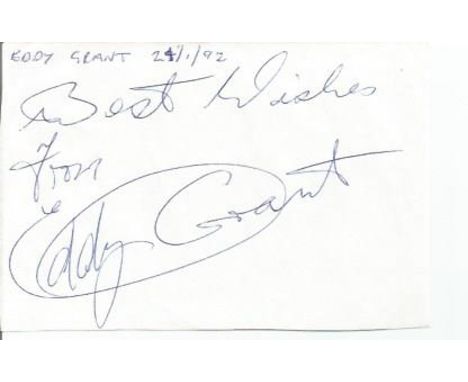 EDDY GRANT 24/1/92
Best Wishes
From
Eddy Grant